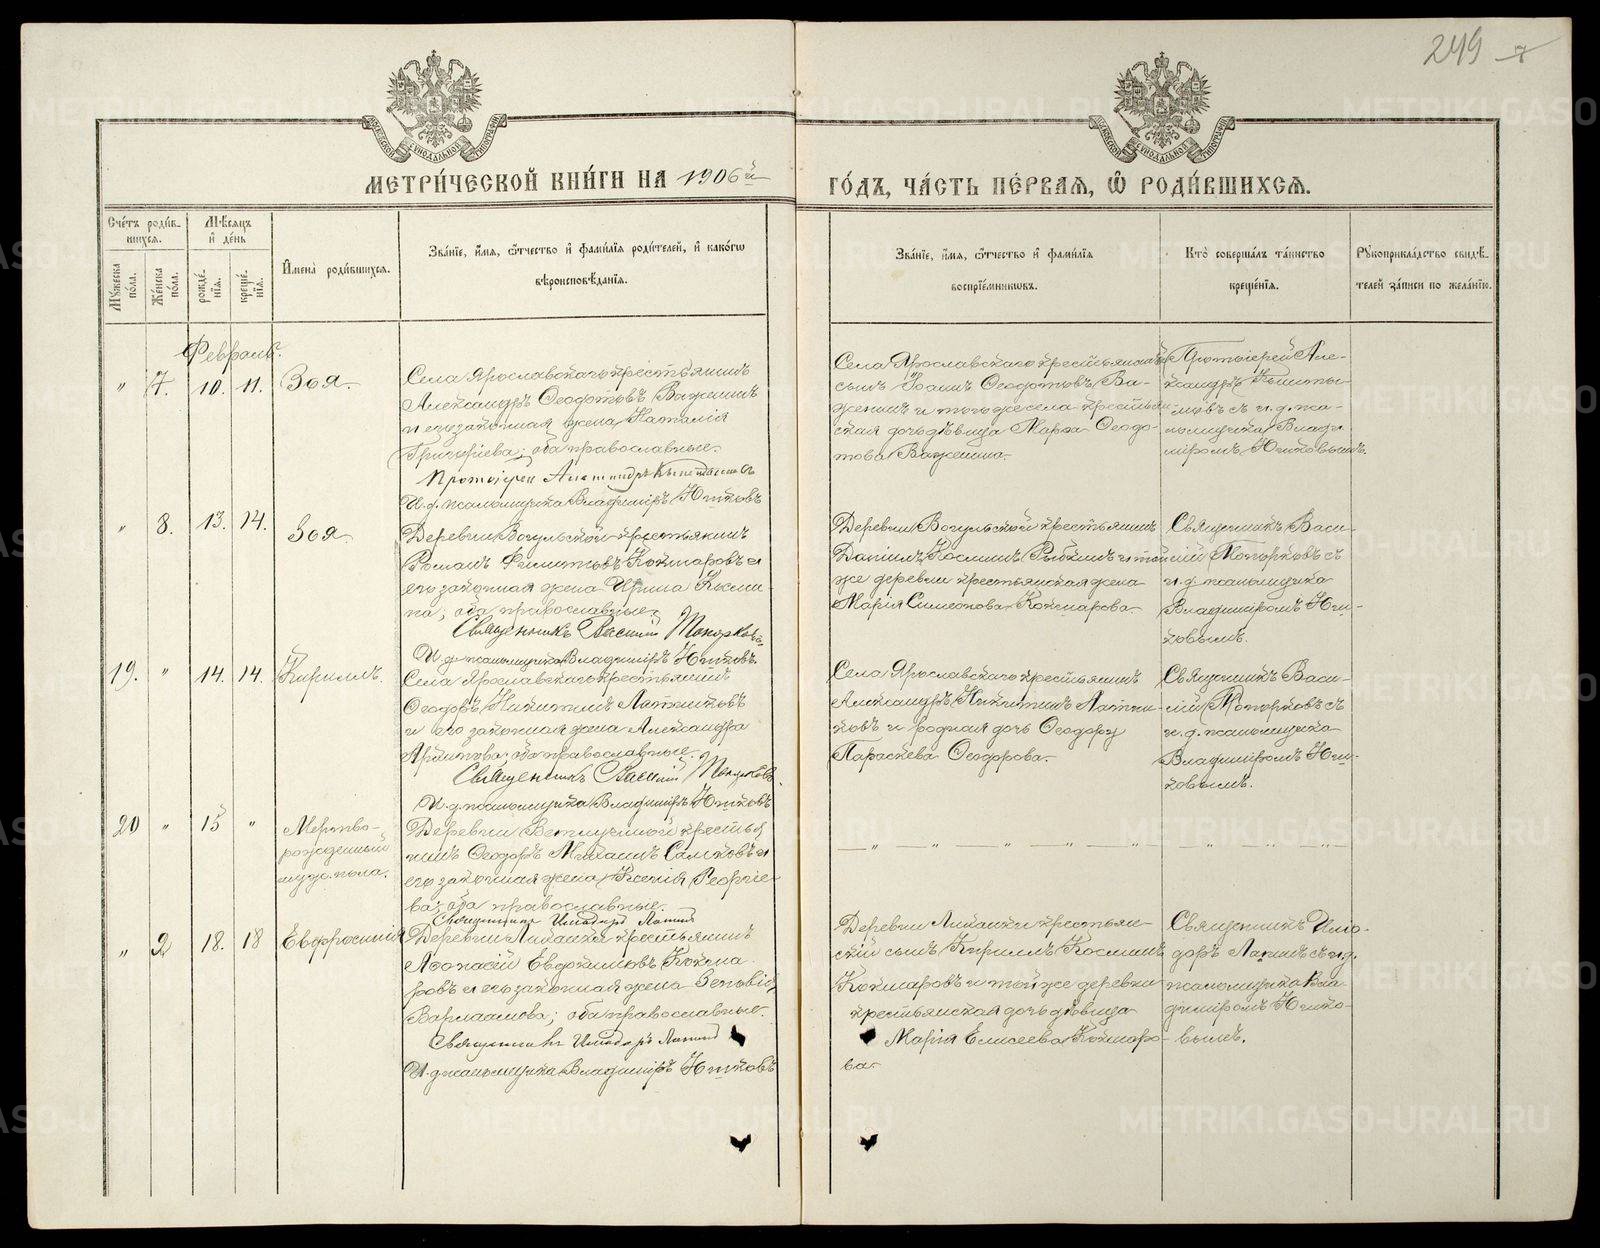 249
МЕТРИ́ЧЕСКОЙ КНИ́ГИ НА 1906й
ГО́ДЪ, ЧА́СТЬ ПЕ́РВАЯ, Ѿ РОДИ́ВШИХСЯ.
Сче́тъ роди́в-
шихся.
Мѣсяцъ
и҆ де́нь
Мꙋжеска по́ла.
Же́нска по́ла.
рожде́-
нїя.
креще́-
нїя.
И҆мена̀ роди́вшихся.
Зва́нїе, и҆́мя, ѻ҆́тчество и҆ фами́лїя роди́телей, и҆ како́гѡ
вѣроисповѣ́данїя.
Зва́нїе, и҆́мя, ѻ҆́тчество и҆ фами́лїя
воспрїе́мникѡвъ.
Кто̀ соверша́лъ та́инство
креще́нїя.
Рꙋкоприкла́дство свидѣ́-
телей за́писи по жела́нїю.
Февраль.
" 7. 10. 11. Зоя.
Села Ярославскаго крестьянинъ
Александръ Ѳеодотовъ Важенинъ
и его законная жена Наталія
Григоріева; оба православные.
Протоіерей Александръ
И. д. псаломщика Владиміръ Ютковъ
Села Ярославскаго крестьянскій
сынъ Іоаннъ Ѳеодотовъ Ва-
женинъ и того же села крестьян-
ская дочь дѣвица Марѳа Ѳеодо-
това Важенина.
Протоіерей Але-
ксандръ
съ и. д. пса-
ломщика Влади-
міромъ Ютковымъ.
" 8. 13. 14. Зоя
Деревни Вогульской крестьянинъ
Романъ Кокшаровъ и
его законная жена Ирина Косми-
на; оба православные.
Священникъ Василій Топорковъ
И. д. псаломщика Владиміръ Ютковъ.
Деревни Вогульской крестьянинъ
Даніилъ Косминъ и той
же деревни крестьянская жена
Марія Симеонова Кокшарова
Священникъ Васи-
лій Топорковъ съ
и. д. псаломщика
Владиміромъ Ют-
ковымъ.
19. " 14. 14. Кириллъ.
Села Ярославскаго крестьянинъ
Ѳеодоръ Никитинъ Латниковъ
и его законная жена Александра
оба православные.
Священникъ Василій Топорковъ
И. д. псаломщика Владиміръ Ютковъ
Села Ярославскаго крестьянинъ
Александръ Никитинъ Латни-
ковъ и родная дочь Ѳеодору
Параскева Ѳеодорова.
Священникъ Васи-
лій Топорковъ съ
и. д. псаломщика
Владиміромъ Ют-
ковымъ.
20 " 15 " Мертво-
рожденный
муж. пола.
Деревни крестья
нинъ Ѳеодоръ Михаилъ и
его законная жена Ксенія Георгіе-
ва; оба православные.
Священникъ Иліодоръ Лапинъ
" 9 18. 18 Евфросинія
Деревни крестьянинъ
Аѳанасій Евдокимовъ Кокша
ровъ и его законная жена Зеновія
Варлаамова; оба православные.
Священникъ Иліодоръ Лапинъ
И. д. псаломщика Владиміръ Ютковъ
Деревни крестьян-
скій сынъ Кириллъ Косминъ
Кокшаровъ и той же деревни
крестьянская дочь дѣвица
Марія Елисеева Кокшаро-
ва
Священникъ Иліо-
доръ Лапинъ съ и. д.
псаломщика Вла-
диміромъ Ютко-
вымъ.
METRIKI.GASO-URAL.RU